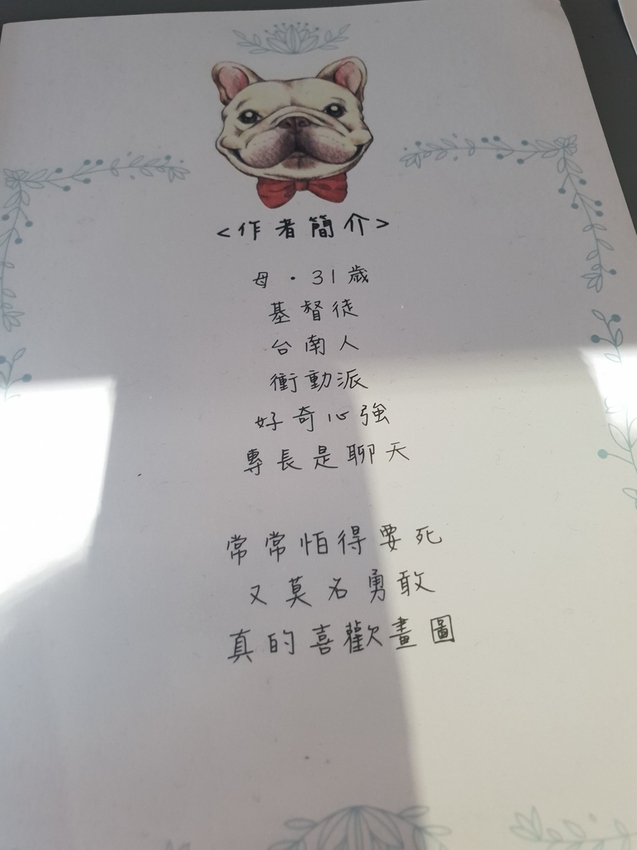 <作者簡介>
母·31歲
基督徒
台南人
衝動派
好奇心強
專長是聊天
常常怕得要死
又莫名勇敢
真的喜歡畫圖